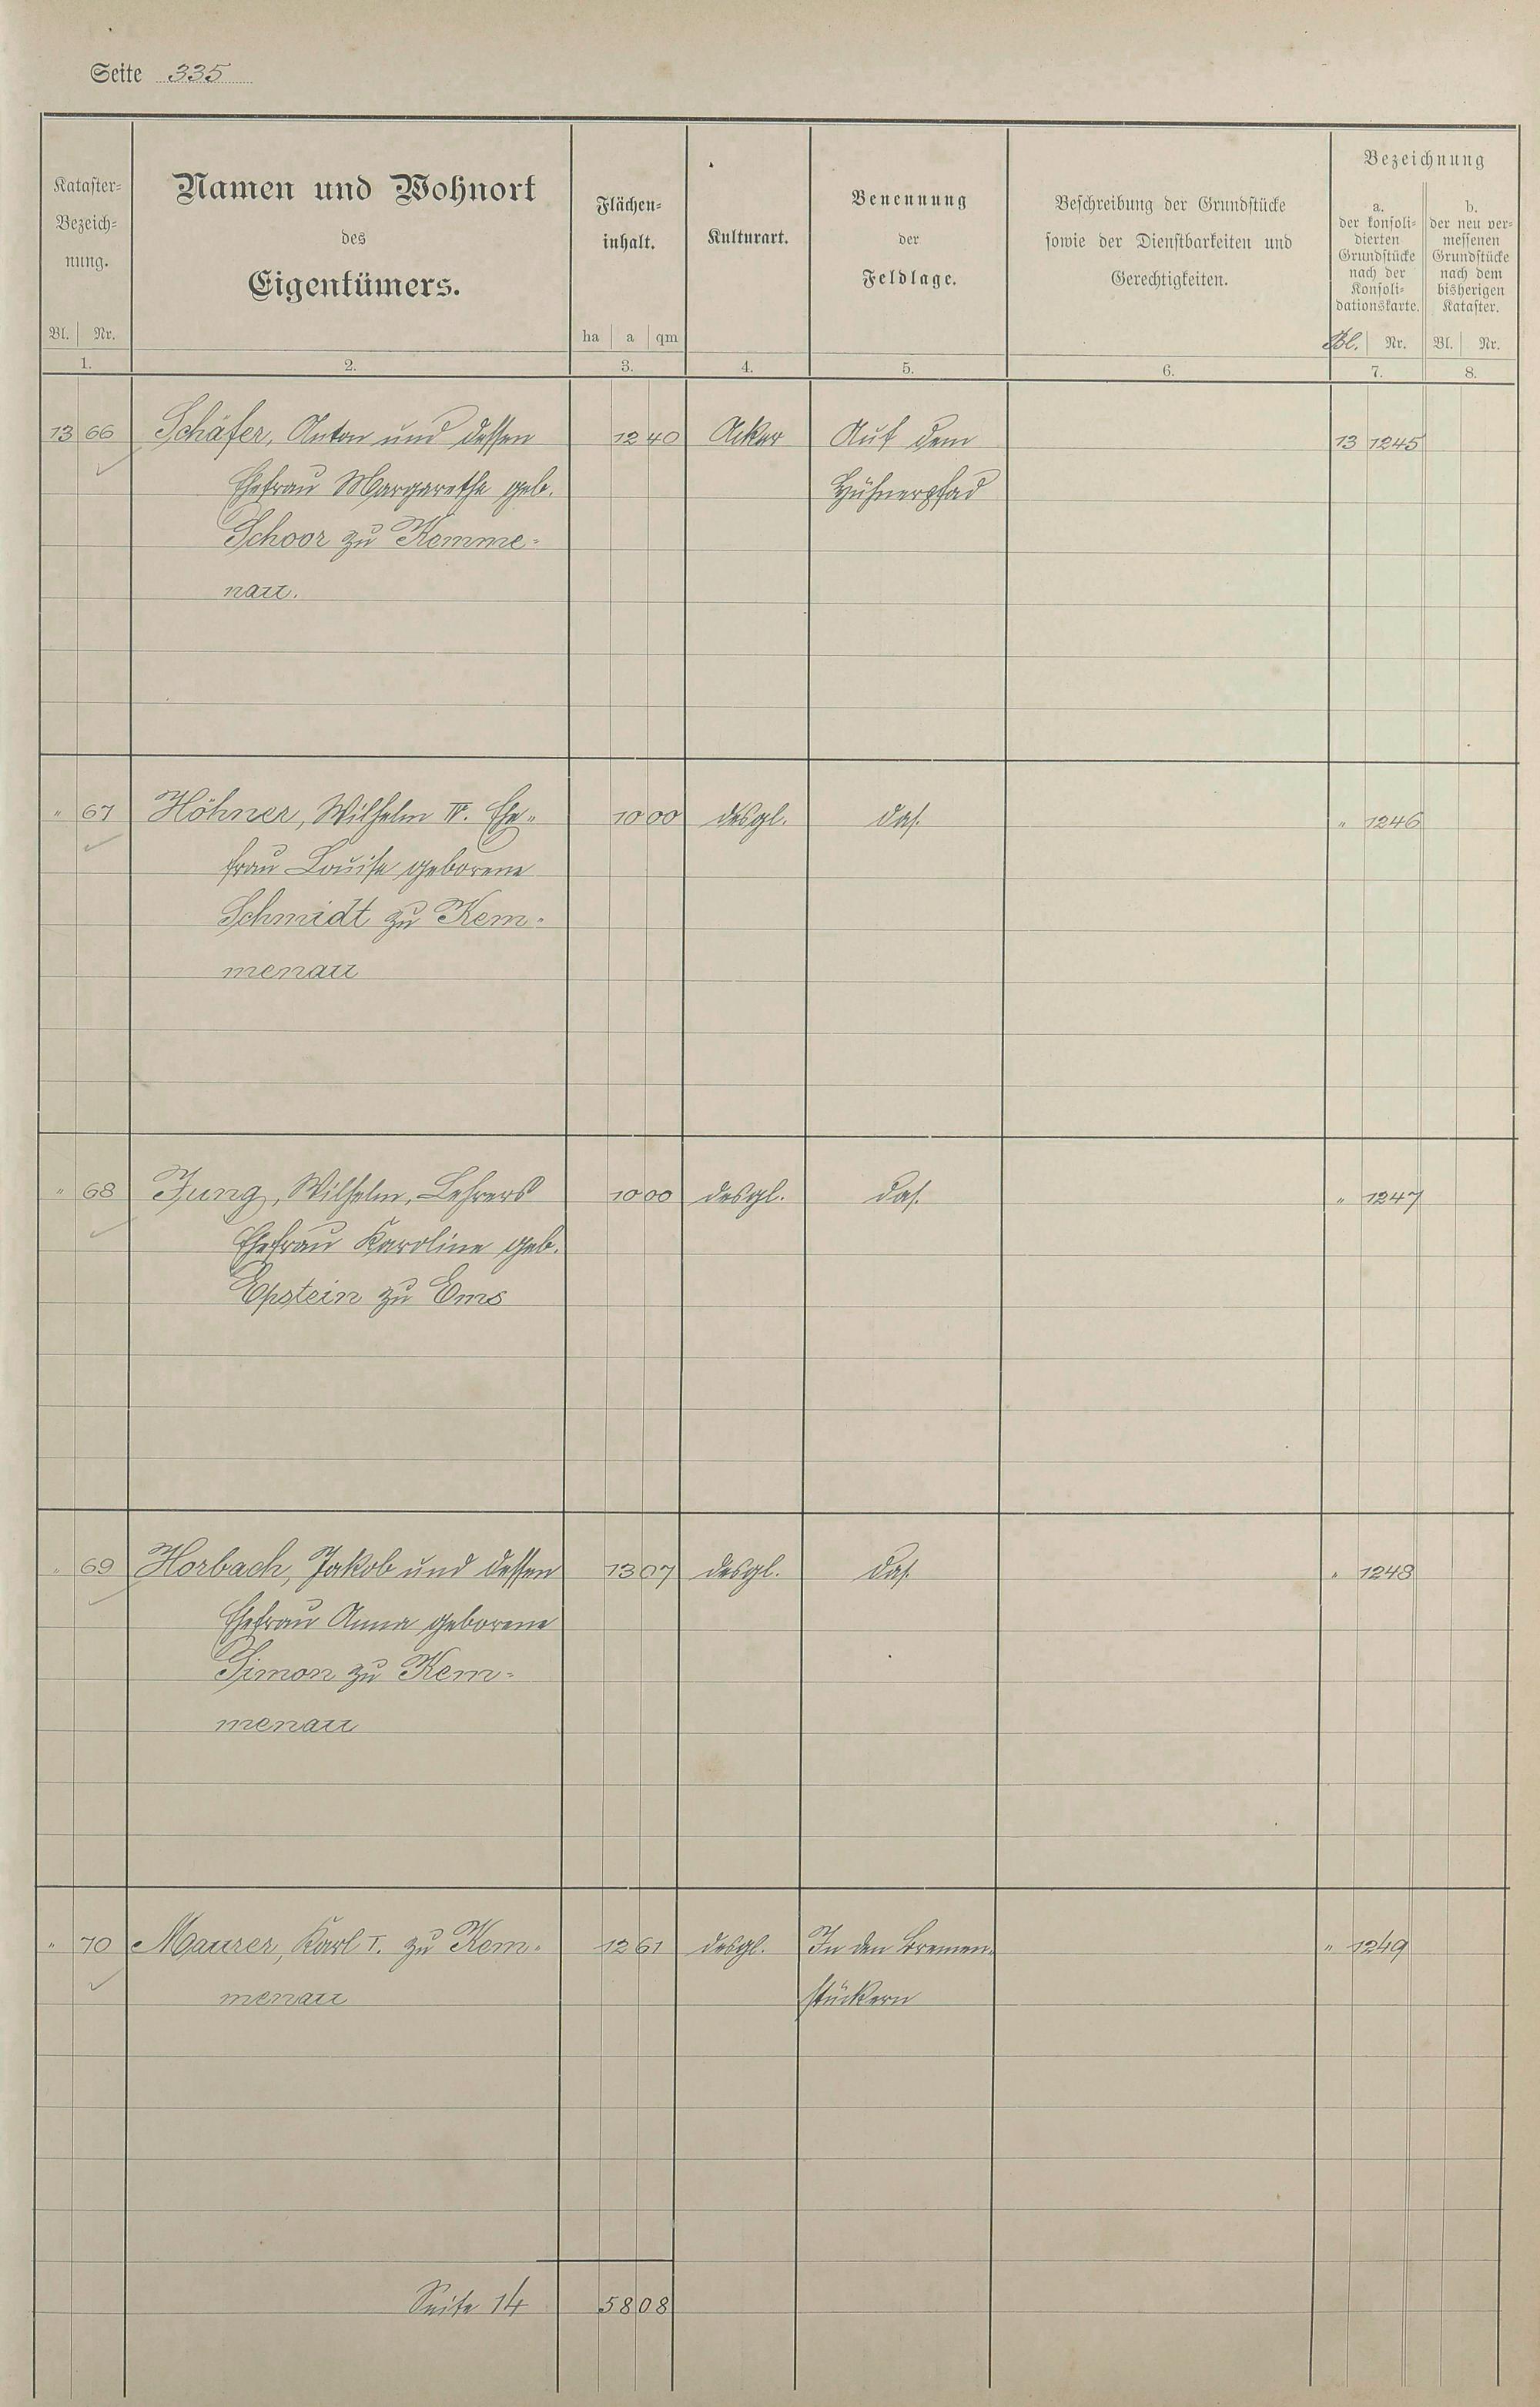 Seite 335
Kataster-
Bezeich-
nung.
Bl. Nr.
1.
Namen und Wohnort
des
Eigentümers.
2.
Flächen-
inhalt.
ha a qm
3.
Kulturart.
4.
Benennung
der
Feldlage.
5.
Beschreibung der Grundstücke
sowie der Dienstbarkeiten und
Gerechtigkeiten.
6.
Bezeichnung
a.
der konsoli-
dierten
Grundstücke
nach der
Konsoli-
dationskarte.
Bl. Nr.
7.
b.
der neu ver-
messenen
Grundstücke
nach dem
bisherigen
Kataster.
Bl. Nr.
8.
13 66 Schäfer, Anton und dessen 12 40 Acker Auf dem 13 1245
Ehefrau Margarethe geb. Hühnerpfad
Schoor zu Kemme-
nau.
" 67 Höhner, Wilhelm IV. Ehe- 10 00 desgl. das. " 1246
frau Louise geborene
Schmidt zu Kem-
menau
" 68 Jung, Wilhelm, Lehrers 10 00 desgl. das. " 1247
Ehefrau Karoline geb.
Epstein zu Ems
" 69 Horbach, Jakob und dessen 13 07 desgl. das. " 1248
Ehefrau Anna geborene
Simon zu Kem-
menau
" 70 Maurer, Karl I. zu Kem- 12 61 desgl. In den Bremen- " 1249
menau stückern
Seite 14 58 08